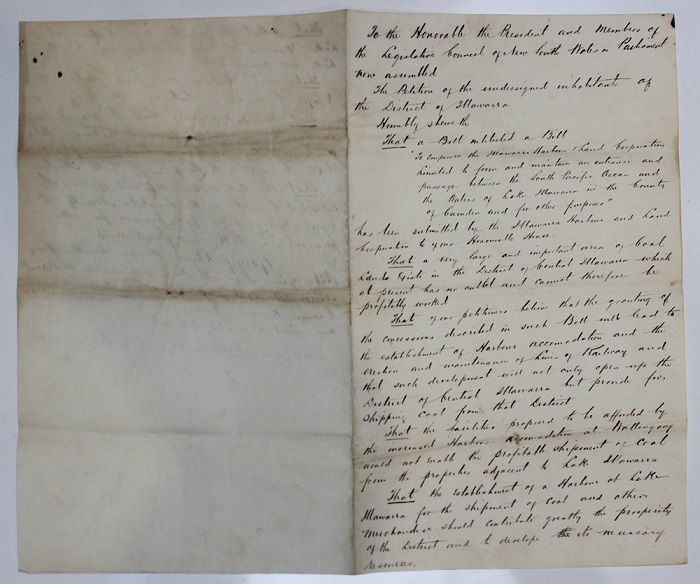 To the Honorable the President and Members of
the Legislative Council of New South Wales in Parliament
now assembled
The Petition of the undersigned inhabitants of
the District of Illawarra
Humbly sheweth
That a Bill intituled a Bill
"To empower the Illawarra Harbour & Land Corporation
Limited to form and maintain an entrance and
passage between the South Pacific Ocean and
the Waters of Lake Illawarra in the County
of Camden and for other purposes"
has been submitted by the Illawarra Harbour and Land
Corporation to your Honorable House
That a very large and important area of Coal
Lands exist in the District of Central Illawarra which
at present has no outlet and cannot therefore be
profitably worked
That your petitioners believe that the granting of
the concessions described in such Bill will lead to
the establishment of Harbour accomodation and the
erection and maintenance of Lines of Railway and
that such development will not only open up the
District of Central Illawarra but provide for
shipping coal from that District
That the facilities proposed to be afforded by
the increased Harbour accomodation at Wollongong
would not enable the profitable shipment of Coal
from the properties adjacent to Lake Illawarra
That the establishment of a Harbour at Lake
Illawarra for the shipment of Coal and other
Merchandise should contribute greatly the prosperity
of the District and to develope the its necessary
resources.